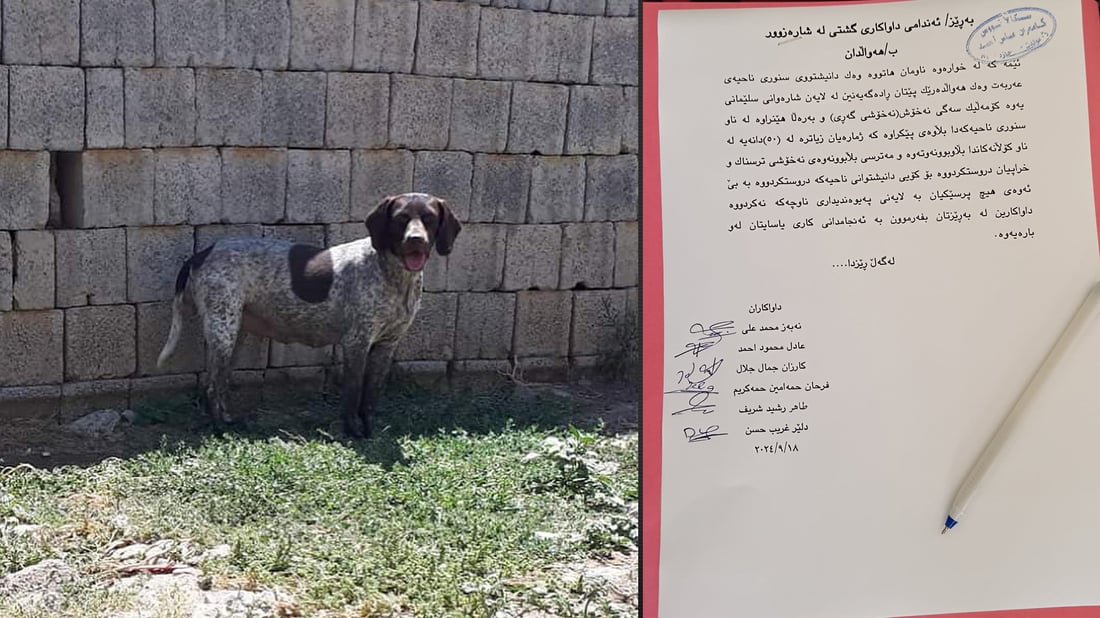 بەڕێز/ ئەندامی داواکاری گشتی لە شارەزوور
ب/هەواڵدان
ئێمە کە لە خوارەوە ناومان هاتووە وەك دانیشتووی سنوری ناحیەی
عەربەت وەك هەواڵدەرێك پێتان ڕادەگەیەنین لە لایەن شارەوانی سلێمانی
یەوە کۆمەڵێك سەگی نەخۆش(نەخۆشی گەڕی) و بەرەڵا هێنراوە لە ناو
سنوری ناحیەکەدا بڵاوەی پێکراوە کە ژمارەیان زیاترە لە (٥٠)دانەیە لە
ناو کۆڵانەکاندا بڵاوبوونەوە و مەترسی بڵابوونەوەی نەخۆشی ترسناك و
خراپیان دروستکردووە بۆ کۆیی دانیشتوانی ناحیەکە دروستکردووە بە بێ
ئەوەی هیچ پرسێکیان بە لایەنی پەیوەندیداری ناوچەکە نەکردووە
داواکارین لە بەڕێزتان بفەرموون بە ئەنجامدانی کاری یاسایتان لەو
بارەیەوە.
لەگەڵ ڕێزدا....
داواکاران
نەبەز محمد علی
عادل محمود احمد
کارزان جمال جلال
فرحان حمەامین حمەکریم
طاهر رشید شریف
دلێر غریب حسن
٢٠٢٤/٩/١٨